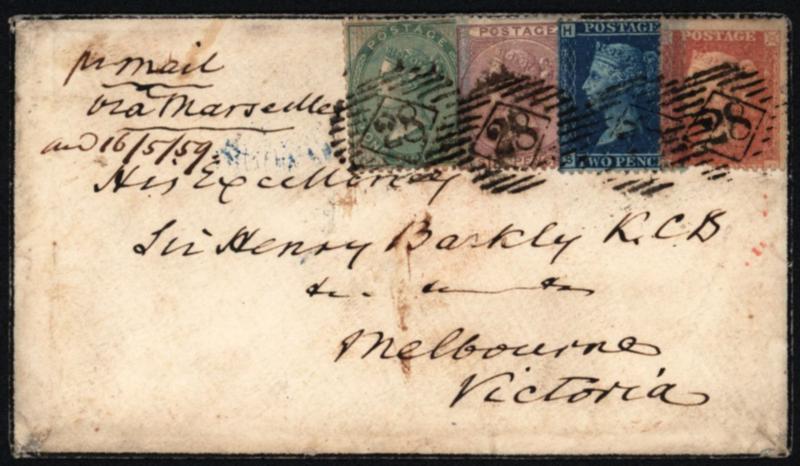 pr mail
via Marseilles
16/5/59.
His Excellency
Sir Henry Barkly K.C.B
Melbourne
Victoria
POSTAGE
28
POSTAGE
28
H POSTAGE
TWO PENCE
POSTAGE
28